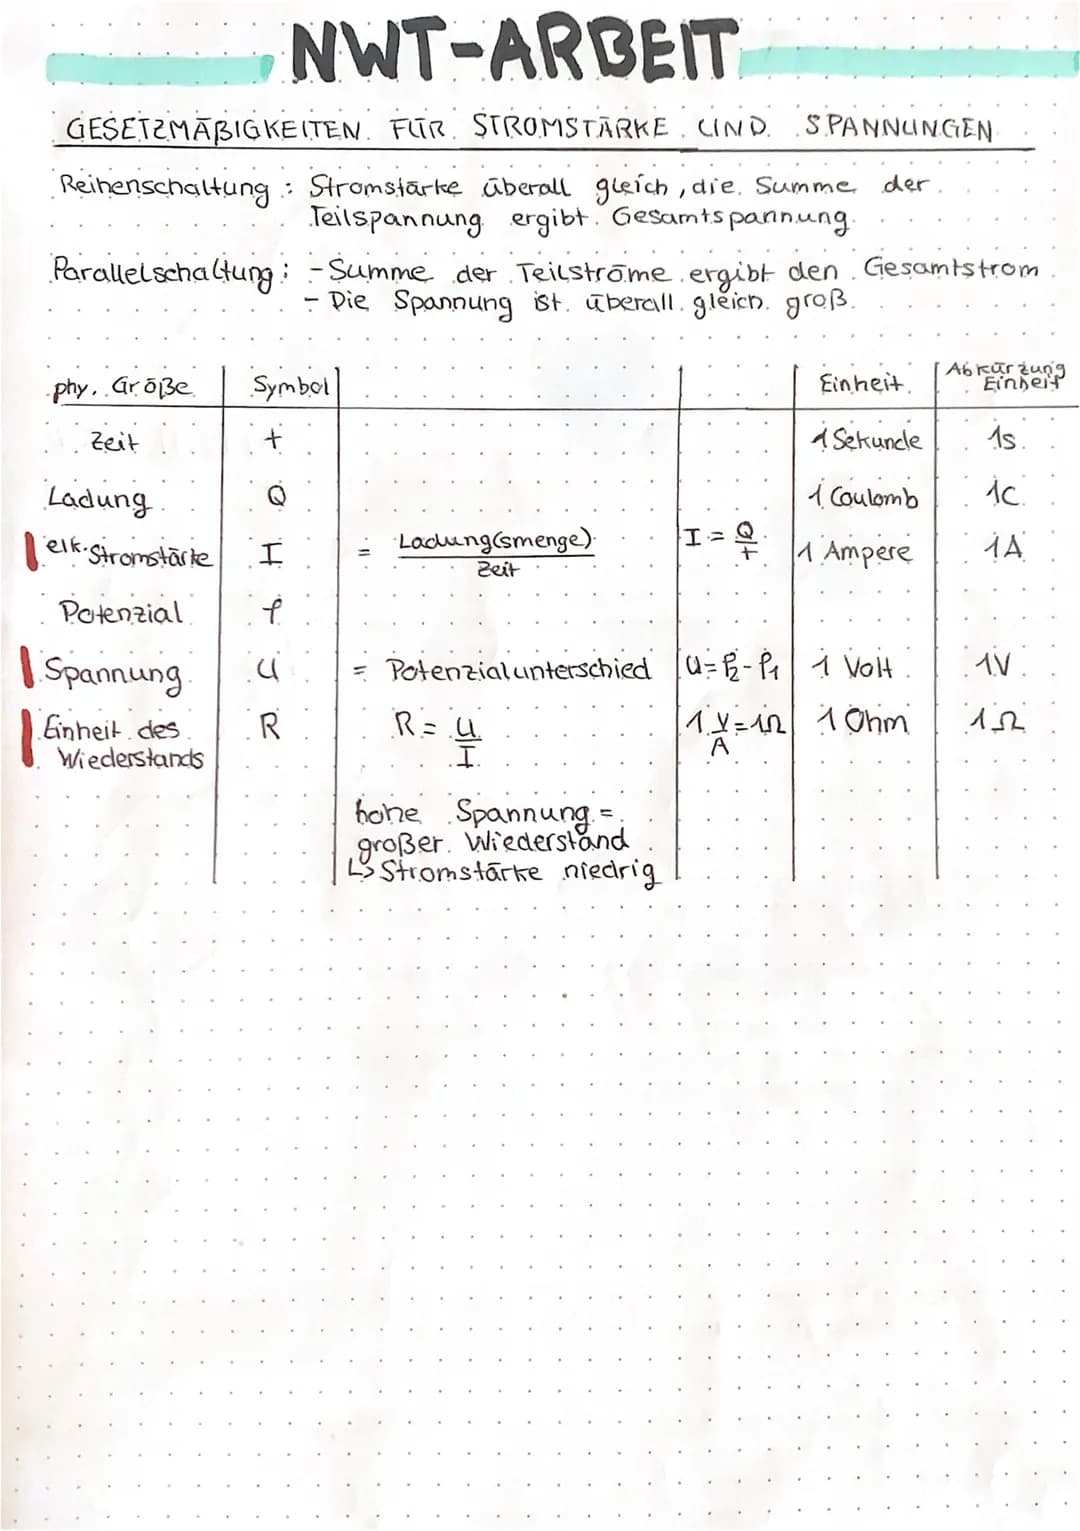 NWT-ARBEIT
GESETZMÄßIGKEITEN FÜR STROMSTÄRKE UND SPANNUNGEN
Reihenschaltung: Stromstärke überall gleich, die Summe der
Teilspannung ergibt Gesamtspannung.
Parallelschaltung: - Summe der Teilströme ergibt den Gesamtstrom
- Die Spannung ist überall gleich groß.
phy. Größe Symbol Einheit Abkürzung Einheit
Zeit t 1 Sekunde 1s
Ladung Q 1 Coulomb 1C
elk. Stromstärke I = Ladung(smenge) / Zeit I = Q / t 1 Ampere 1A
Potenzial φ
Spannung U = Potenzialunterschied U = φ2 - φ1 1 Volt 1V
Einheit des R R = U / I 1 V / A = 1Ω 1 Ohm 1Ω
Wiederstands
hohe Spannung =
großer Wiederstand
↳ Stromstärke niedrig